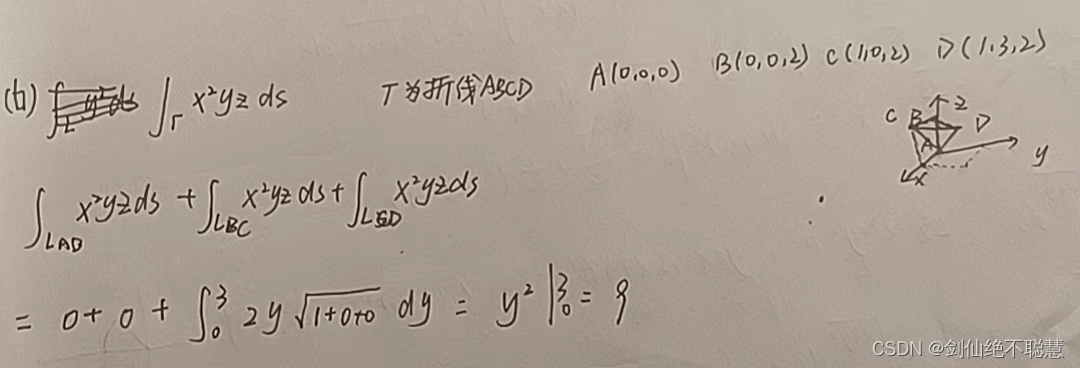 (b) ∫_Γ x²yz ds Γ为折线ABCD A(0,0,0) B(0,0,2) C(1,0,2) D(1,3,2)
C B z D A y x
∫_LAB x²yz ds + ∫_LBC x²yz ds + ∫_LCD x²yz ds
= 0 + 0 + ∫₀³ 2y √(1+0+0) dy = y² |₀³ = 9
CSDN @剑仙绝不聪慧